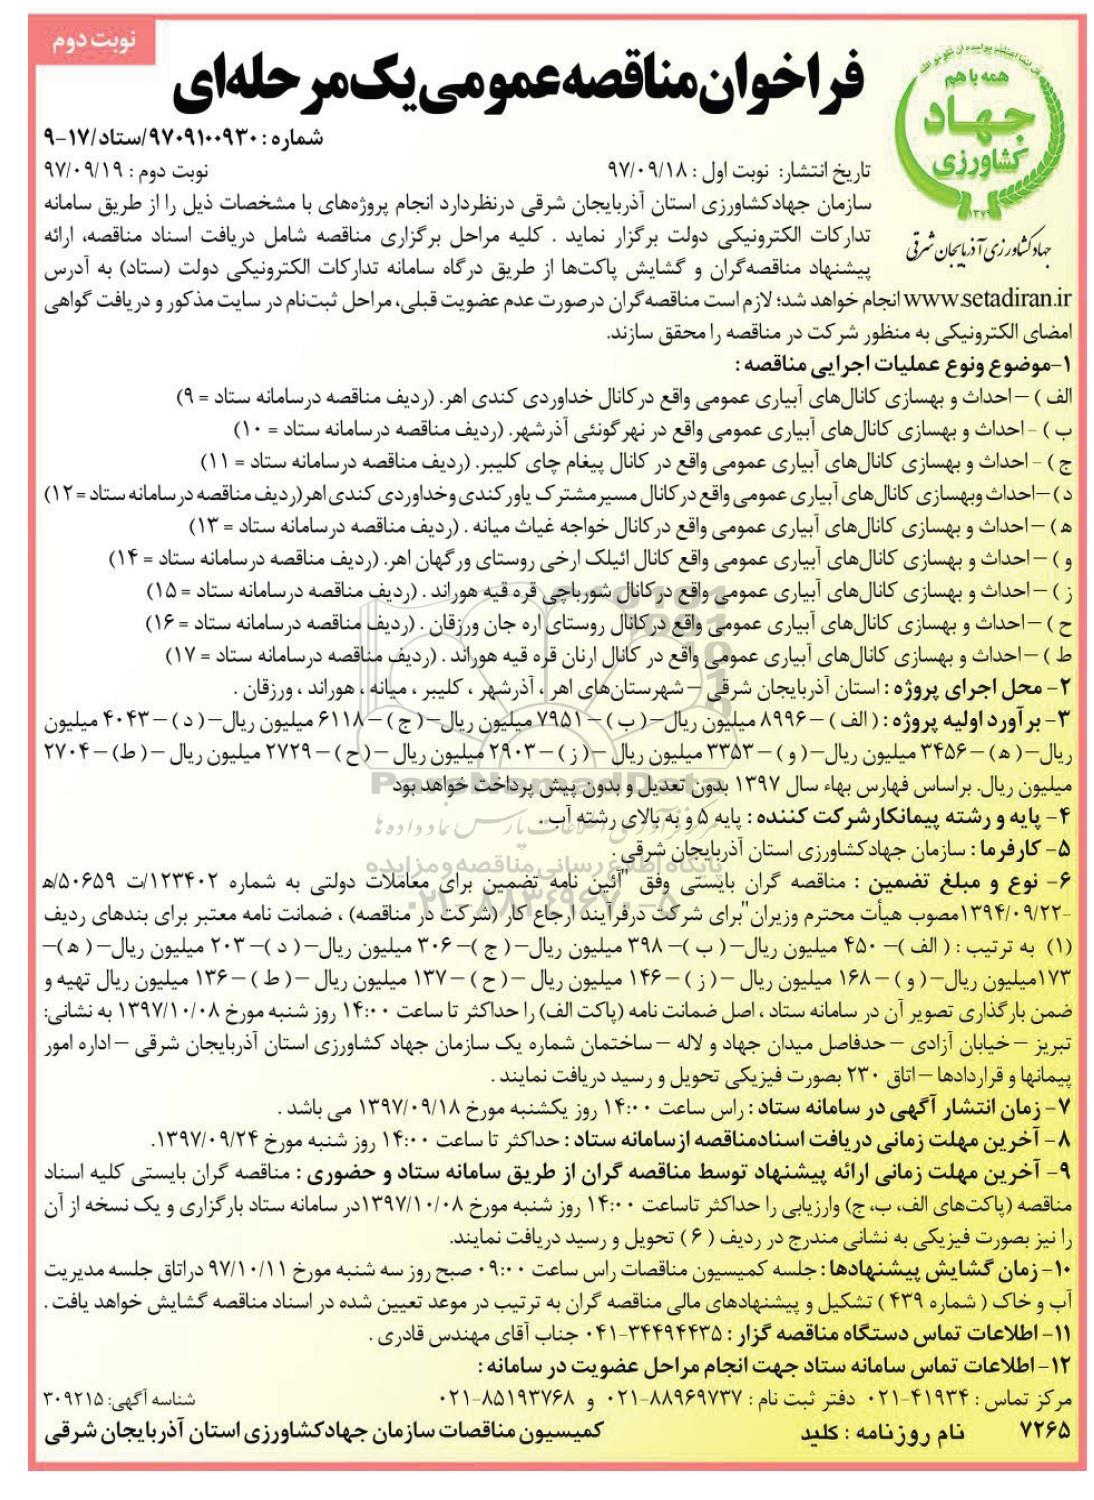 نوبت دوم
همه با هم
جهاد
کشاورزی
۱۳۷۹
جهاد کشاورزی آذربایجان شرقی
فراخوان مناقصه عمومی یک مرحله‌ای
شماره : ۹۷۰۹۱۰۰۹۳۰/ستاد/۱۷-۹
تاریخ انتشار: نوبت اول : ۹۷/۰۹/۱۸ نوبت دوم : ۹۷/۰۹/۱۹
سازمان جهادکشاورزی استان آذربایجان شرقی درنظردارد انجام پروژه‌های با مشخصات ذیل را از طریق سامانه
تدارکات الکترونیکی دولت برگزار نماید . کلیه مراحل برگزاری مناقصه شامل دریافت اسناد مناقصه، ارائه
پیشنهاد مناقصه‌گران و گشایش پاکت‌ها از طریق درگاه سامانه تدارکات الکترونیکی دولت (ستاد) به آدرس
www.setadiran.ir انجام خواهد شد؛ لازم است مناقصه‌گران درصورت عدم عضویت قبلی، مراحل ثبت‌نام در سایت مذکور و دریافت گواهی
امضای الکترونیکی به منظور شرکت در مناقصه را محقق سازند.
۱-موضوع ونوع عملیات اجرایی مناقصه :
الف ) –احداث و بهسازی کانال‌های آبیاری عمومی واقع درکانال خداوردی کندی اهر. (ردیف مناقصه درسامانه ستاد = ۹)
ب ) - احداث و بهسازی کانال‌های آبیاری عمومی واقع در نهرگونئی آذرشهر. (ردیف مناقصه درسامانه ستاد = ۱۰)
ج ) - احداث و بهسازی کانال‌های آبیاری عمومی واقع در کانال پیغام چای کلیبر. (ردیف مناقصه درسامانه ستاد = ۱۱)
د) –احداث وبهسازی کانال‌های آبیاری عمومی واقع درکانال مسیرمشترک یاورکندی وخداوردی کندی اهر(ردیف مناقصه درسامانه ستاد = ۱۲)
ه ) –احداث و بهسازی کانال‌های آبیاری عمومی واقع درکانال خواجه غیاث میانه . (ردیف مناقصه درسامانه ستاد = ۱۳)
و ) –احداث و بهسازی کانال‌های آبیاری عمومی واقع کانال ائیلک ارخی روستای ورگهان اهر. (ردیف مناقصه درسامانه ستاد = ۱۴)
ز ) –احداث و بهسازی کانال‌های آبیاری عمومی واقع درکانال شورباچی قره قیه هوراند . (ردیف مناقصه درسامانه ستاد = ۱۵)
ح ) –احداث و بهسازی کانال‌های آبیاری عمومی واقع درکانال روستای اره جان ورزقان . (ردیف مناقصه درسامانه ستاد = ۱۶)
ط ) –احداث و بهسازی کانال‌های آبیاری عمومی واقع در کانال ارنان قره قیه هوراند . (ردیف مناقصه درسامانه ستاد = ۱۷)
۲- محل اجرای پروژه : استان آذربایجان شرقی – شهرستان‌های اهر ، آذرشهر ، کلیبر ، میانه ، هوراند ، ورزقان .
۳- برآورد اولیه پروژه : ( الف ) –۸۹۹۶ میلیون ریال–( ب )–۷۹۵۱ میلیون ریال–( ج )–۶۱۱۸ میلیون ریال–( د )–۴۰۴۳ میلیون
ریال–( ه )–۳۴۵۶ میلیون ریال–( و )–۳۳۵۳ میلیون ریال –( ز )–۲۹۰۳ میلیون ریال –( ح )–۲۷۲۹ میلیون ریال –( ط )–۲۷۰۴
میلیون ریال. براساس فهارس بهاء سال ۱۳۹۷ بدون تعدیل و بدون پیش پرداخت خواهد بود
ParsNamadData
مرکز فرآوری اطلاعات پارس نماد داده ها
۴- پایه و رشته پیمانکارشرکت کننده : پایه ۵ و به بالای رشته آب .
۵- کارفرما : سازمان جهادکشاورزی استان آذربایجان شرقی.
پایگاه اطلاع رسانی مناقصه و مزایده
۰۲۱-۸۸۳۴۹۶۷۰-۵
۶- نوع و مبلغ تضمین : مناقصه گران بایستی وفق "آئین نامه تضمین برای معاملات دولتی به شماره ۱۲۳۴۰۲/ت ۵۰۶۵۹/ه
-۱۳۹۴/۰۹/۲۲مصوب هیأت محترم وزیران"برای شرکت درفرآیند ارجاع کار (شرکت در مناقصه) ، ضمانت نامه معتبر برای بندهای ردیف
(۱) به ترتیب : ( الف )– ۴۵۰ میلیون ریال–( ب )– ۳۹۸ میلیون ریال–( ج )– ۳۰۶ میلیون ریال–( د )– ۲۰۳ میلیون ریال–( ه )–
۱۷۳میلیون ریال–( و )–۱۶۸ میلیون ریال –( ز )–۱۴۶ میلیون ریال –( ح )–۱۳۷ میلیون ریال –( ط )–۱۳۶ میلیون ریال تهیه و
ضمن بارگذاری تصویر آن در سامانه ستاد ، اصل ضمانت نامه (پاکت الف) را حداکثر تا ساعت ۱۴:۰۰ روز شنبه مورخ ۱۳۹۷/۱۰/۰۸ به نشانی:
تبریز – خیابان آزادی – حدفاصل میدان جهاد و لاله – ساختمان شماره یک سازمان جهاد کشاورزی استان آذربایجان شرقی – اداره امور
پیمانها و قراردادها – اتاق ۲۳۰ بصورت فیزیکی تحویل و رسید دریافت نمایند .
۷- زمان انتشار آگهی در سامانه ستاد : راس ساعت ۱۴:۰۰ روز یکشنبه مورخ ۱۳۹۷/۰۹/۱۸ می باشد .
۸- آخرین مهلت زمانی دریافت اسنادمناقصه ازسامانه ستاد : حداکثر تا ساعت ۱۴:۰۰ روز شنبه مورخ ۱۳۹۷/۰۹/۲۴.
۹- آخرین مهلت زمانی ارائه پیشنهاد توسط مناقصه گران از طریق سامانه ستاد و حضوری : مناقصه گران بایستی کلیه اسناد
مناقصه (پاکت‌های الف، ب، ج) وارزیابی را حداکثر تاساعت ۱۴:۰۰ روز شنبه مورخ ۱۳۹۷/۱۰/۰۸در سامانه ستاد بارگزاری و یک نسخه از آن
را نیز بصورت فیزیکی به نشانی مندرج در ردیف ( ۶ ) تحویل و رسید دریافت نمایند.
۱۰- زمان گشایش پیشنهادها : جلسه کمیسیون مناقصات راس ساعت ۰۹:۰۰ صبح روز سه شنبه مورخ ۹۷/۱۰/۱۱ دراتاق جلسه مدیریت
آب و خاک ( شماره ۴۳۹ ) تشکیل و پیشنهادهای مالی مناقصه گران به ترتیب در موعد تعیین شده در اسناد مناقصه گشایش خواهد یافت .
۱۱- اطلاعات تماس دستگاه مناقصه گزار : ۳۴۴۹۴۴۳۵-۰۴۱ جناب آقای مهندس قادری .
۱۲- اطلاعات تماس سامانه ستاد جهت انجام مراحل عضویت در سامانه :
مرکز تماس : ۴۱۹۳۴-۰۲۱ دفتر ثبت نام : ۸۸۹۶۹۷۳۷-۰۲۱ و ۸۵۱۹۳۷۶۸-۰۲۱ شناسه آگهی: ۳۰۹۲۱۵
۷۲۶۵ نام روزنامه : کلید کمیسیون مناقصات سازمان جهادکشاورزی استان آذربایجان شرقی